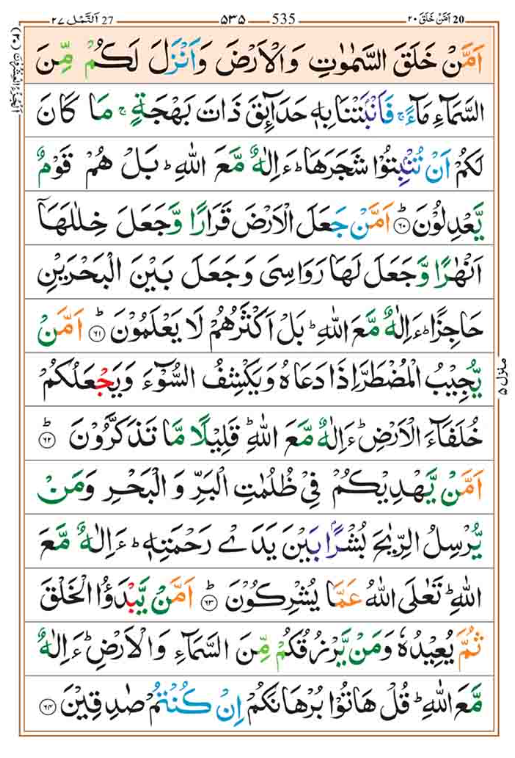 ٢٧ اَلنَّمْل 27 ٥٣٥ 535 ٢٠ اَمَّنْ خَلَقَ 20
اَمَّنْ خَلَقَ السَّمٰوٰتِ وَالْاَرْضَ وَاَنْزَلَ لَكُمْ مِّنَ
السَّمَآءِ مَآءً ۚ فَاَنْۢبَتْنَا بِهٖ حَدَآئِقَ ذَاتَ بَهْجَةٍ ۚ مَا كَانَ
لَكُمْ اَنْ تُنْۢبِتُوْا شَجَرَهَا ؕ ءَاِلٰهٌ مَّعَ اللّٰهِ ؕ بَلْ هُمْ قَوْمٌ
يَّعْدِلُوْنَ ؕ ﴿۶۰﴾ اَمَّنْ جَعَلَ الْاَرْضَ قَرَارًا وَّجَعَلَ خِلٰلَهَاۤ
اَنْهٰرًا وَّجَعَلَ لَهَا رَوَاسِىَ وَجَعَلَ بَيْنَ الْبَحْرَيْنِ
حَاجِزًا ؕ ءَاِلٰهٌ مَّعَ اللّٰهِ ؕ بَلْ اَكْثَرُهُمْ لَا يَعْلَمُوْنَ ؕ ﴿۶۱﴾ اَمَّنْ
يُّجِيْبُ الْمُضْطَرَّ اِذَا دَعَاهُ وَيَكْشِفُ السُّوْٓءَ وَيَجْعَلُكُمْ
خُلَفَآءَ الْاَرْضِ ؕ ءَاِلٰهٌ مَّعَ اللّٰهِ ؕ قَلِيْلًا مَّا تَذَكَّرُوْنَ ؕ ﴿۶۲﴾
اَمَّنْ يَّهْدِيْكُمْ فِىْ ظُلُمٰتِ الْبَرِّ وَ الْبَحْرِ وَمَنْ
يُّرْسِلُ الرِّيٰحَ بُشْرًۢا بَيْنَ يَدَىْ رَحْمَتِهٖ ؕ ءَاِلٰهٌ مَّعَ
اللّٰهِ ؕ تَعٰلَى اللّٰهُ عَمَّا يُشْرِكُوْنَ ؕ ﴿۶۳﴾ اَمَّنْ يَّبْدَؤُا الْخَلْقَ
ثُمَّ يُعِيْدُهٗ وَمَنْ يَّرْزُقُكُمْ مِّنَ السَّمَآءِ وَالْاَرْضِ ؕ ءَاِلٰهٌ
مَّعَ اللّٰهِ ؕ قُلْ هَاتُوْا بُرْهَانَكُمْ اِنْ كُنْتُمْ صٰدِقِيْنَ ﴿۶۴﴾
منزل ۵